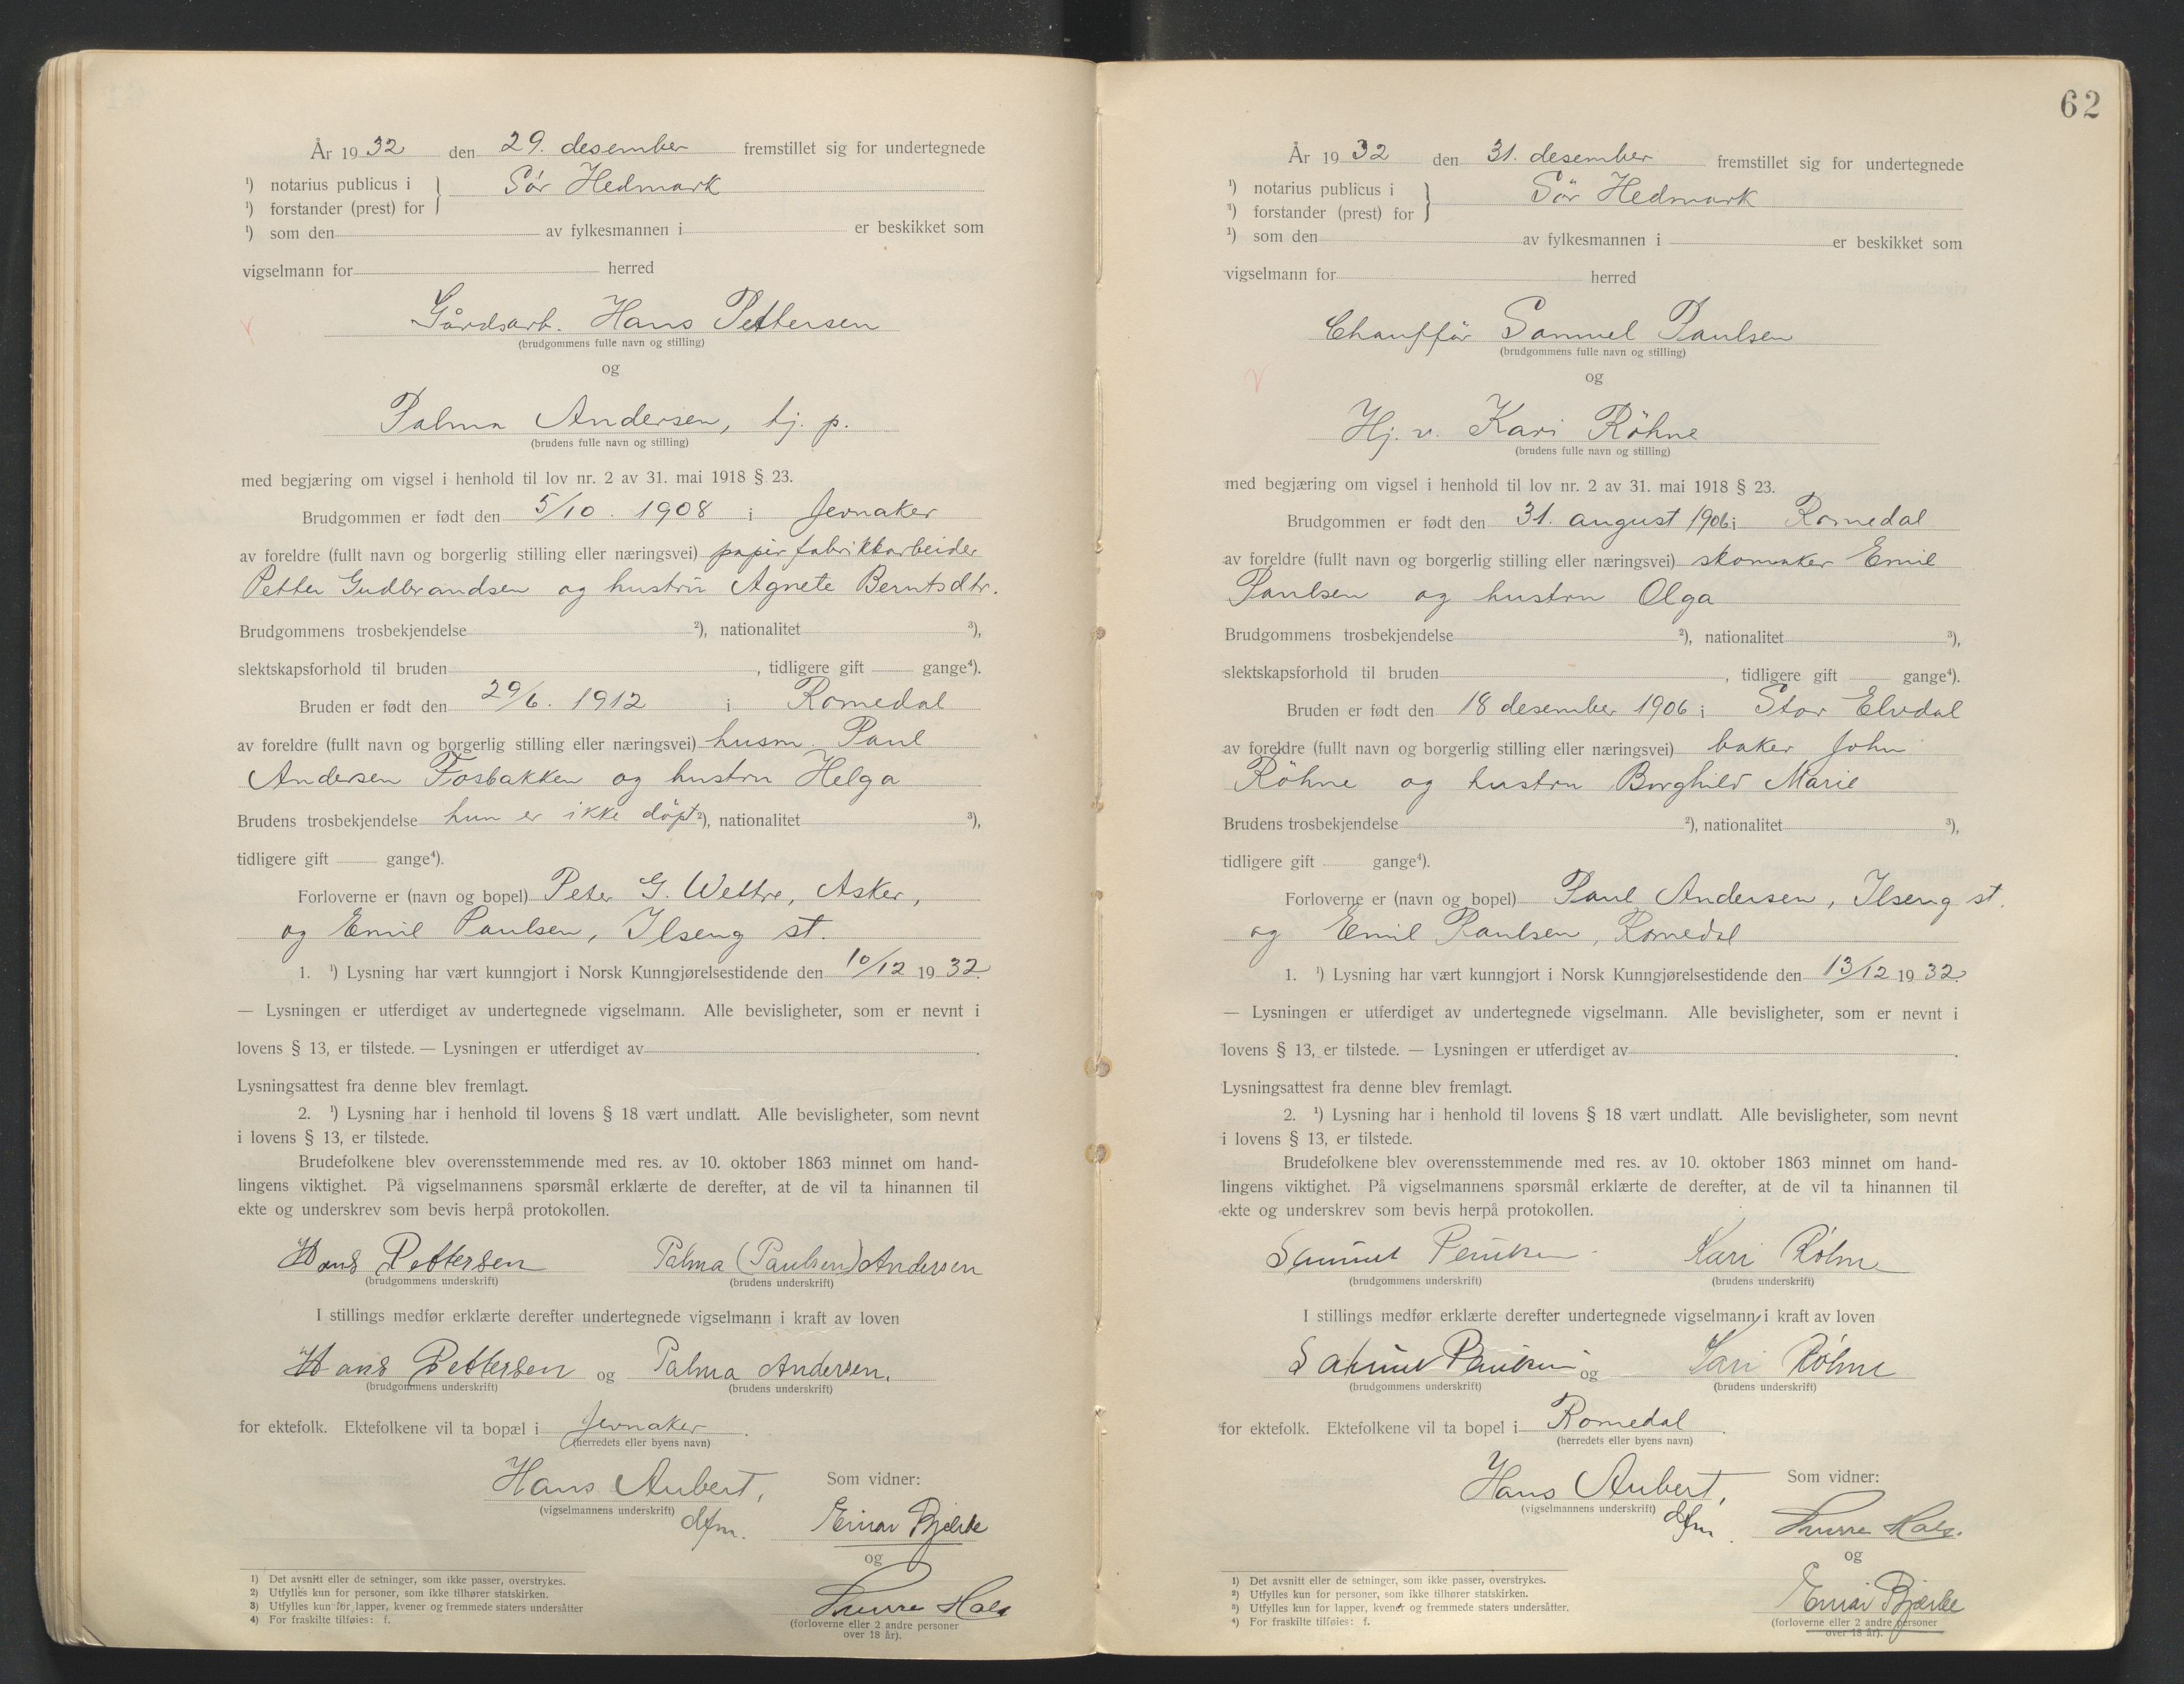 År 19 32 den 29. desember fremstillet sig for undertegnede
¹) notarius publicus i } Sör Hedmark
¹) forstander (prest) for
¹) som den av fylkesmannen i er beskikket som
vigselmann for herred
Gårdsarb. Hans Pettersen
(brudgommens fulle navn og stilling)
og
Palma Andersen, hj. p.
(brudens fulle navn og stilling)
med begjæring om vigsel i henhold til lov nr. 2 av 31. mai 1918 § 23.
Brudgommen er født den 5/10. 1908 i Jevnaker
av foreldre (fullt navn og borgerlig stilling eller næringsvei) papirfabrikkarbeider
Petter Gudbrandsen og hustru Agnete Berntsdtr.
Brudgommens trosbekjendelse ²), nationalitet ³),
slektskapsforhold til bruden , tidligere gift gange⁴).
Bruden er født den 29/6. 1912 i Romedal
av foreldre (fullt navn og borgerlig stilling eller næringsvei) husm. Paul
Andersen Fosbakken og hustru Helga
Brudens trosbekjendelse hun er ikke döpt ²), nationalitet ³),
tidligere gift gange⁴).
Forloverne er (navn og bopel) Peter G. Wettre, Asker,
og Emil Paulsen, Ilseng st.
1. ¹) Lysning har vært kunngjort i Norsk Kunngjørelsestidende den 10/12 19 32.
— Lysningen er utferdiget av undertegnede vigselmann. Alle bevisligheter, som er nevnt i
lovens § 13, er tilstede. — Lysningen er utferdiget av .
Lysningsattest fra denne blev fremlagt.
2. ¹) Lysning har i henhold til lovens § 18 vært undlatt. Alle bevisligheter, som nevnt
i lovens § 13, er tilstede.
Brudefolkene blev overensstemmende med res. av 10. oktober 1863 minnet om hand-
lingens viktighet. På vigselmannens spørsmål erklærte de derefter, at de vil ta hinannen til
ekte og underskrev som bevis herpå protokollen.
Hans Pettersen Palma (Paulsen) Andersen
(brudgommens underskrift) (brudens underskrift)
I stillings medfør erklærte derefter undertegnede vigselmann i kraft av loven
Hans Pettersen og Palma Andersen.
(brudgommens underskrift) (brudens underskrift)
for ektefolk. Ektefolkene vil ta bopæl i Jevnaker .
(herredets eller byens navn)
Hans Aubert, Som vidner:
(vigselmannens underskrift) dfm. Einar Bjerke
og
Hals
(forloverne eller 2 andre personer
over 18 år).
1) Det avsnitt eller de setninger, som ikke passer, overstrykes.
2) Utfylles kun for personer, som ikke tilhører statskirken.
3) Utfylles kun for lapper, kvener og fremmede staters undersåtter
4) For fraskilte tilføies: f.
62
År 19 32 den 31. desember fremstillet sig for undertegnede
¹) notarius publicus i } Sör Hedmark
¹) forstander (prest) for
¹) som den av fylkesmannen i er beskikket som
vigselmann for herred
Chaufför Samuel Paulsen
(brudgommens fulle navn og stilling)
og
Hj. v. Kari Röhne
(brudens fulle navn og stilling)
med begjæring om vigsel i henhold til lov nr. 2 av 31. mai 1918 § 23.
Brudgommen er født den 31. august 1906 i Romedal
av foreldre (fullt navn og borgerlig stilling eller næringsvei) skomaker Emil
Paulsen og hustru Olga
Brudgommens trosbekjendelse ²), nationalitet ³),
slektskapsforhold til bruden , tidligere gift gange⁴).
Bruden er født den 18 desember 1906 i Stor Elvdal
av foreldre (fullt navn og borgerlig stilling eller næringsvei) baker John
Röhne og hustru Borghild Marie
Brudens trosbekjendelse ²), nationalitet ³),
tidligere gift gange⁴).
Forloverne er (navn og bopel) Paul Andersen, Ilseng st.
og Emil Paulsen, Romedal
1. ¹) Lysning har vært kunngjort i Norsk Kunngjørelsestidende den 13/12 19 32.
— Lysningen er utferdiget av undertegnede vigselmann. Alle bevisligheter, som er nevnt i
lovens § 13, er tilstede. — Lysningen er utferdiget av .
Lysningsattest fra denne blev fremlagt.
2. ¹) Lysning har i henhold til lovens § 18 vært undlatt. Alle bevisligheter, som nevnt
i lovens § 13, er tilstede.
Brudefolkene blev overensstemmende med res. av 10. oktober 1863 minnet om hand-
lingens viktighet. På vigselmannens spørsmål erklærte de derefter, at de vil ta hinannen til
ekte og underskrev som bevis herpå protokollen.
Samuel Paulsen Kari Röhne
(brudgommens underskrift) (brudens underskrift)
I stillings medfør erklærte derefter undertegnede vigselmann i kraft av loven
Samuel Paulsen og Kari Röhne
(brudgommens underskrift) (brudens underskrift)
for ektefolk. Ektefolkene vil ta bopel i Romedal .
(herredets eller byens navn)
Hans Aubert, Som vidner:
(vigselmannens underskrift) dfm. Hals.
og
Einar Bjerke
(forloverne eller 2 andre personer
over 18 år).
¹) Det avsnitt eller de setninger, som ikke passer, overstrykes.
²) Utfylles kun for personer, som ikke tilhører statskirken.
³) Utfylles kun for lapper, kvener og fremmede staters undersåtter.
⁴) For fraskilte tilføies: f.